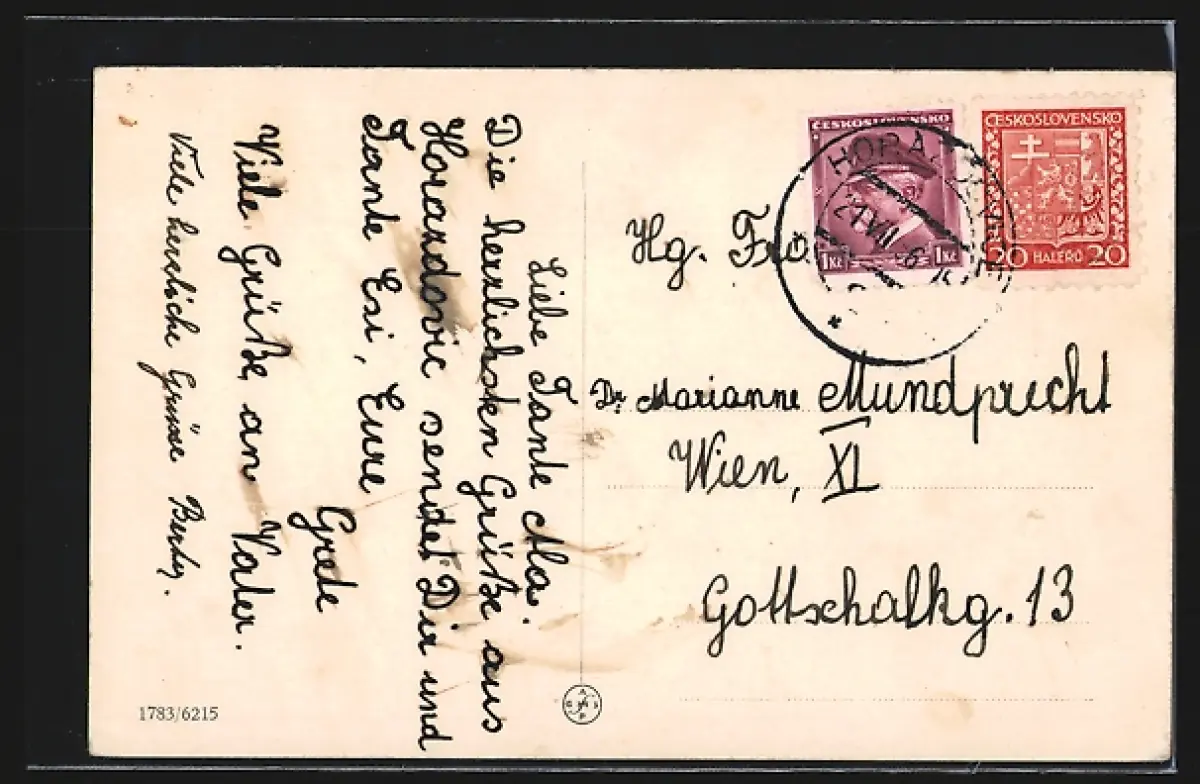 Liebe Tante Ala.
Die herzlichsten Grüße aus
Horazdovic sendet Dir und
Tante Esi, Eure
Grete
Viele Grüße an Vater.
Viele herzliche Grüsse
1783/6215
ČESKOSLOVENSKO
1 Kč 1 Kč
ČESKOSLOVENSKO
20 HALÉŘŮ 20
Hg.
Dr Marianne Mundprecht
Wien, XI
Gottschalkg. 13